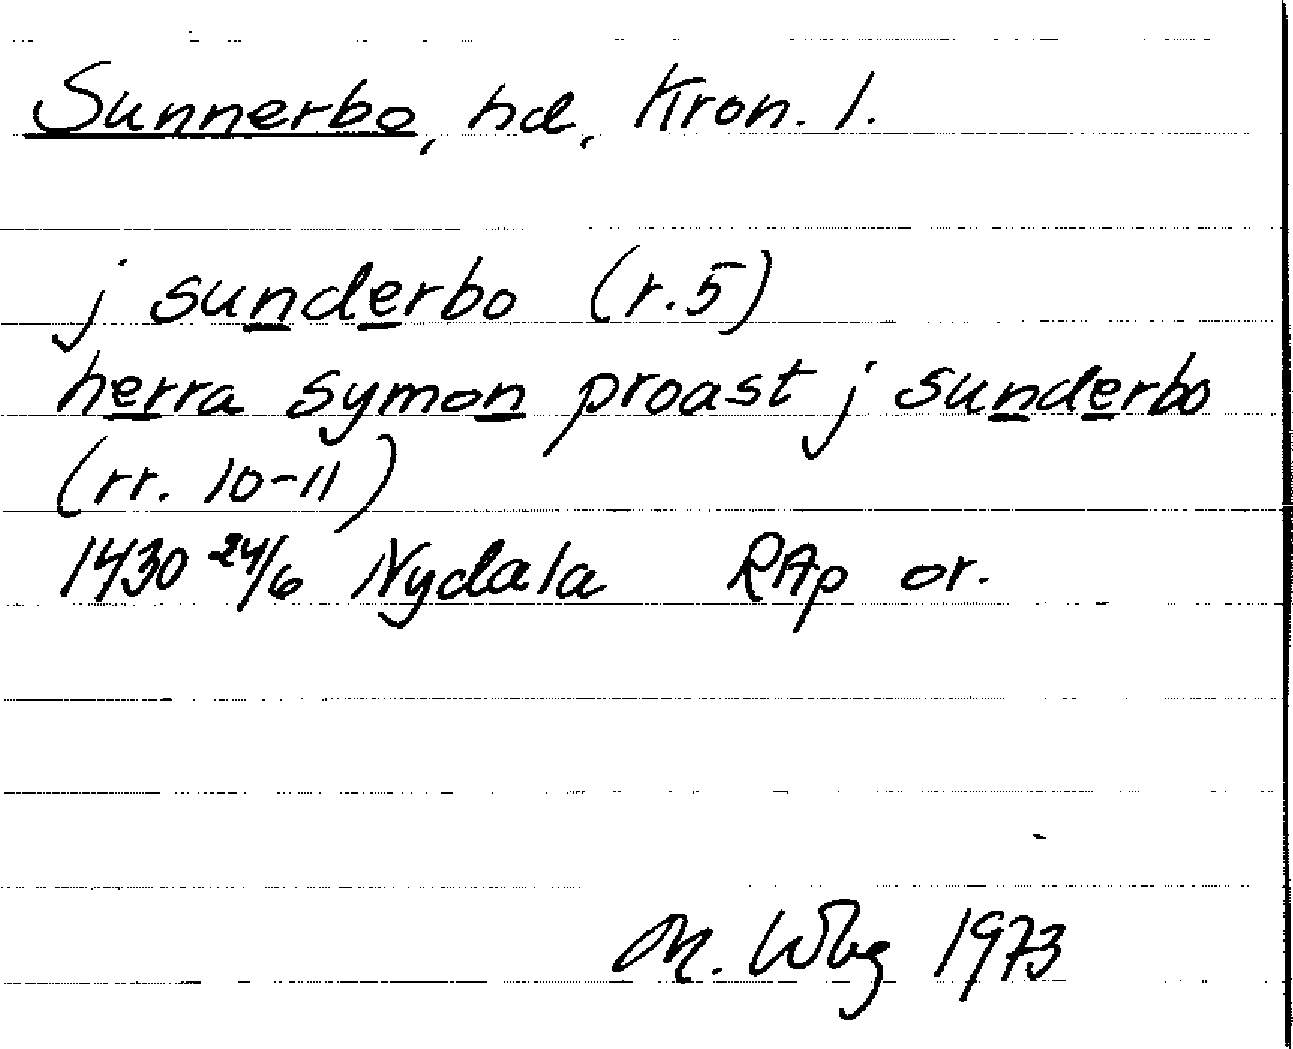 Sunnerbo, hd, Kron. l.
j sunderbo (r.5)
herra symon proast j sunderbo
(rr. 10-11)
1430 24/6 Nydala RAp or.
M. Wbg 1973